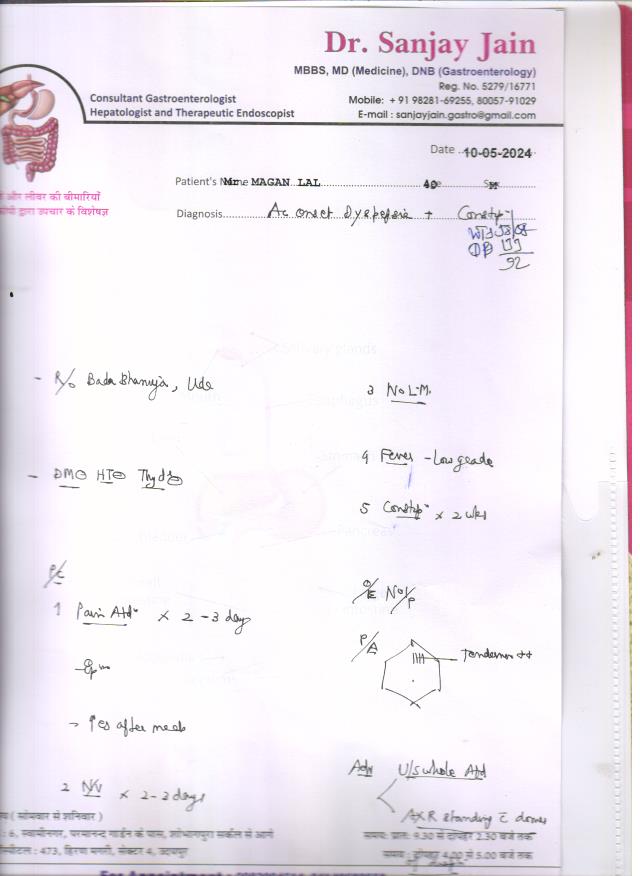 Dr. Sanjay Jain
MBBS, MD (Medicine), DNB (Gastroenterology)
Reg. No. 5279/16771
Mobile: + 91 98281-69255, 80057-91029
E-mail : sanjayjain.gastro@gmail.com
Consultant Gastroenterologist
Hepatologist and Therapeutic Endoscopist
और लीवर की बीमारियाँ
द्वारा उपचार के विशेषज्ञ
Date 10-05-2024
Patient's Name Mr MAGAN LAL 40 Sex M
Diagnosis Ac onset dyspepsia + Constpn
92
- R/o Bada Bhanuja, Ude
- DM⊖ HT⊖ Thyd⊖
P/C
1 Pain Abdn x 2-3 days
→ ↑es after meals
2 N/V x 2-3 days
3 No L.M.
4 Fever - Low grade
5 Constpn x 2 wks
O/E
P/A Tenderness ++
Adv U/S whole Abd
AXR standing c̄ domes
( सोमवार से शनिवार )
: 6, स्वामीनगर, परमानन्द गार्डन के पास, शोभागपुरा सर्कल से आगे
: 473, हिरण मगरी, सेक्टर 4, उदयपुर
समय: प्रातः 9.30 से दोपहर 2.30 बजे तक
4.00 से 5.00 बजे तक
For Appointment :